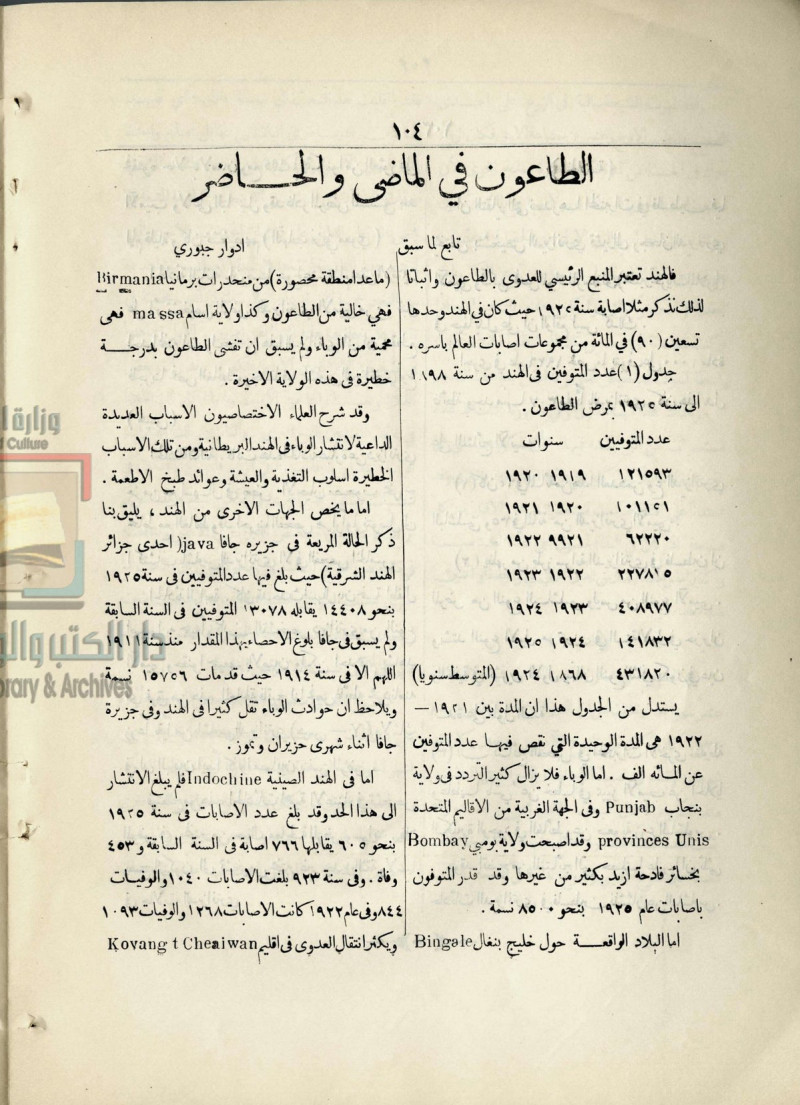 ١٠٤
الطاعون في الماضى والحاضر
تابع لما سبق
فالهند تعتبر المنبع الرئيسي للعدوى بالطاعون واثباتا
لذلك نذكر مثلا اصابة سنة ١٩٢٥ حيث كان في الهند وحدها
تسعين (٩٠) في المائة من مجموعات اصابات العالم باسره .
جدول (١) عدد المتوفين فى الهند من سنة ١٨٩٨
الى سنة ١٩٢٥ بمرض الطاعون .
عدد المتوفيين سنوات
١٢١٥٩٣ ١٩١٩ ١٩٢٠
١٠١١٢١ ١٩٢٠ ١٩٢١
٦٢٢٢٠ ٩٩٢١ ١٩٢٢
٢٢٧٨١٥ ١٩٢٢ ١٩٢٣
٤٠٨٩٧٧ ١٩٢٣ ١٩٢٤
١٤١٨٣٢ ١٩٢٤ ١٩٢٥
٤٣١٨٢٠ ١٨٦٨ ١٩٢٤ (المتوسط سنويا)
يستدل من الجدول هذا ان المدة بين ١٩٢١ —
١٩٢٢ هى المدة الوحيدة التي نقص فيها عدد المتوفين
عن المائه الف . اما الوباء فلا يزال كثير التردد فى ولاية
بنجاب Punjab وفى الجهة الغربية من الاقاليم المتحدة
provinces Unis وقد اصبحت ولاية بومبي Bombay
بخسائر فادحة ازيد بكثير من غيرها وقد قدر المتوفون
باصابات عام ١٩٢٥ بنحو ٨٥٠٠ نسمة .
اما البلاد الواقعة حول خليج بنغال Bingale
ادوار جبوري
(ماعدا منطقة محصورة) من منحدرات برمانيا Birmania
فهي خالية من الطاعون وكذا ولاية اسام massa فهى
محمية من الوباء ولم يسبق ان تفشى الطاعون بدرجة
خطيرة فى هذه الولاية الاخيرة .
وقد شرح العلماء الاختصاصيون الاسباب العديدة
الداعية لانتشار الوباء فى الهند البريطانية ومن تلك الاسباب
الخطيرة اسلوب التغذية والعيشة وعوائد طبخ الاطعمة .
اما ما يخص الجهات الاخرى من الهند ، يليق بنا
ذكر الحالة المريعة فى جزيره جافا java( احدى جزائر
الهند الشرقية) حيث بلغ فيها عدد المتوفيين فى سنة ١٩٢٥
بنحو ١٤٤٠٨ يقابله ١٣٠٧٨ المتوفيين فى السنة السابقة
ولم يسبق فى جافا بلوغ الاحصاء بهذا المقدار منذ سنة ١٩١١
اللهم الا فى سنة ١٩١٤ حيث قد مات ١٥٧٥٦ نسمة
ويلاحظ ان حوادث الوباء تقل كثيرا فى الهند وفى جزيرة
جافا اثناء شهرى حزيران وتموز .
اما فى الهند الصينية Indochine فلم يبلغ الانتشار
الى هذا الحد وقد بلغ عدد الاصابات فى سنة ١٩٢٥
بنحو ٦٠٥ يقابلها ٧٦٦ اصابة فى السنة السابقة و ٤٥٣
وفاة . وفى سنة ٩٢٣ بلغت الاصابات ١٠٤٠ والوفيات
٨٤٤ وفى عام ١٩٢٢ كانت الاصابات ١٢٦٨ والوفيات ١٠٩٣
ويكثر انتقال العدوى فى اقليم Kovang t Cheaiwan
وزارة
Culture
دار الكتب والو
rary & Archives